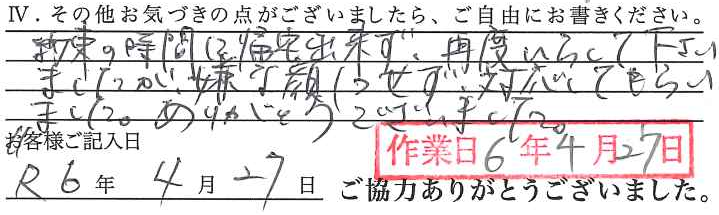 Ⅳ.その他お気づきの点がございましたら、ご自由にお書きください。
約束の時間に帰宅出来ず、再度いらして下さい
ましたが、嫌な顔1つせず、対応してもらい
ました。ありがとうございました。
お客様ご記入日
作業日6年4月27日
R6年4月27日
ご協力ありがとうございました。